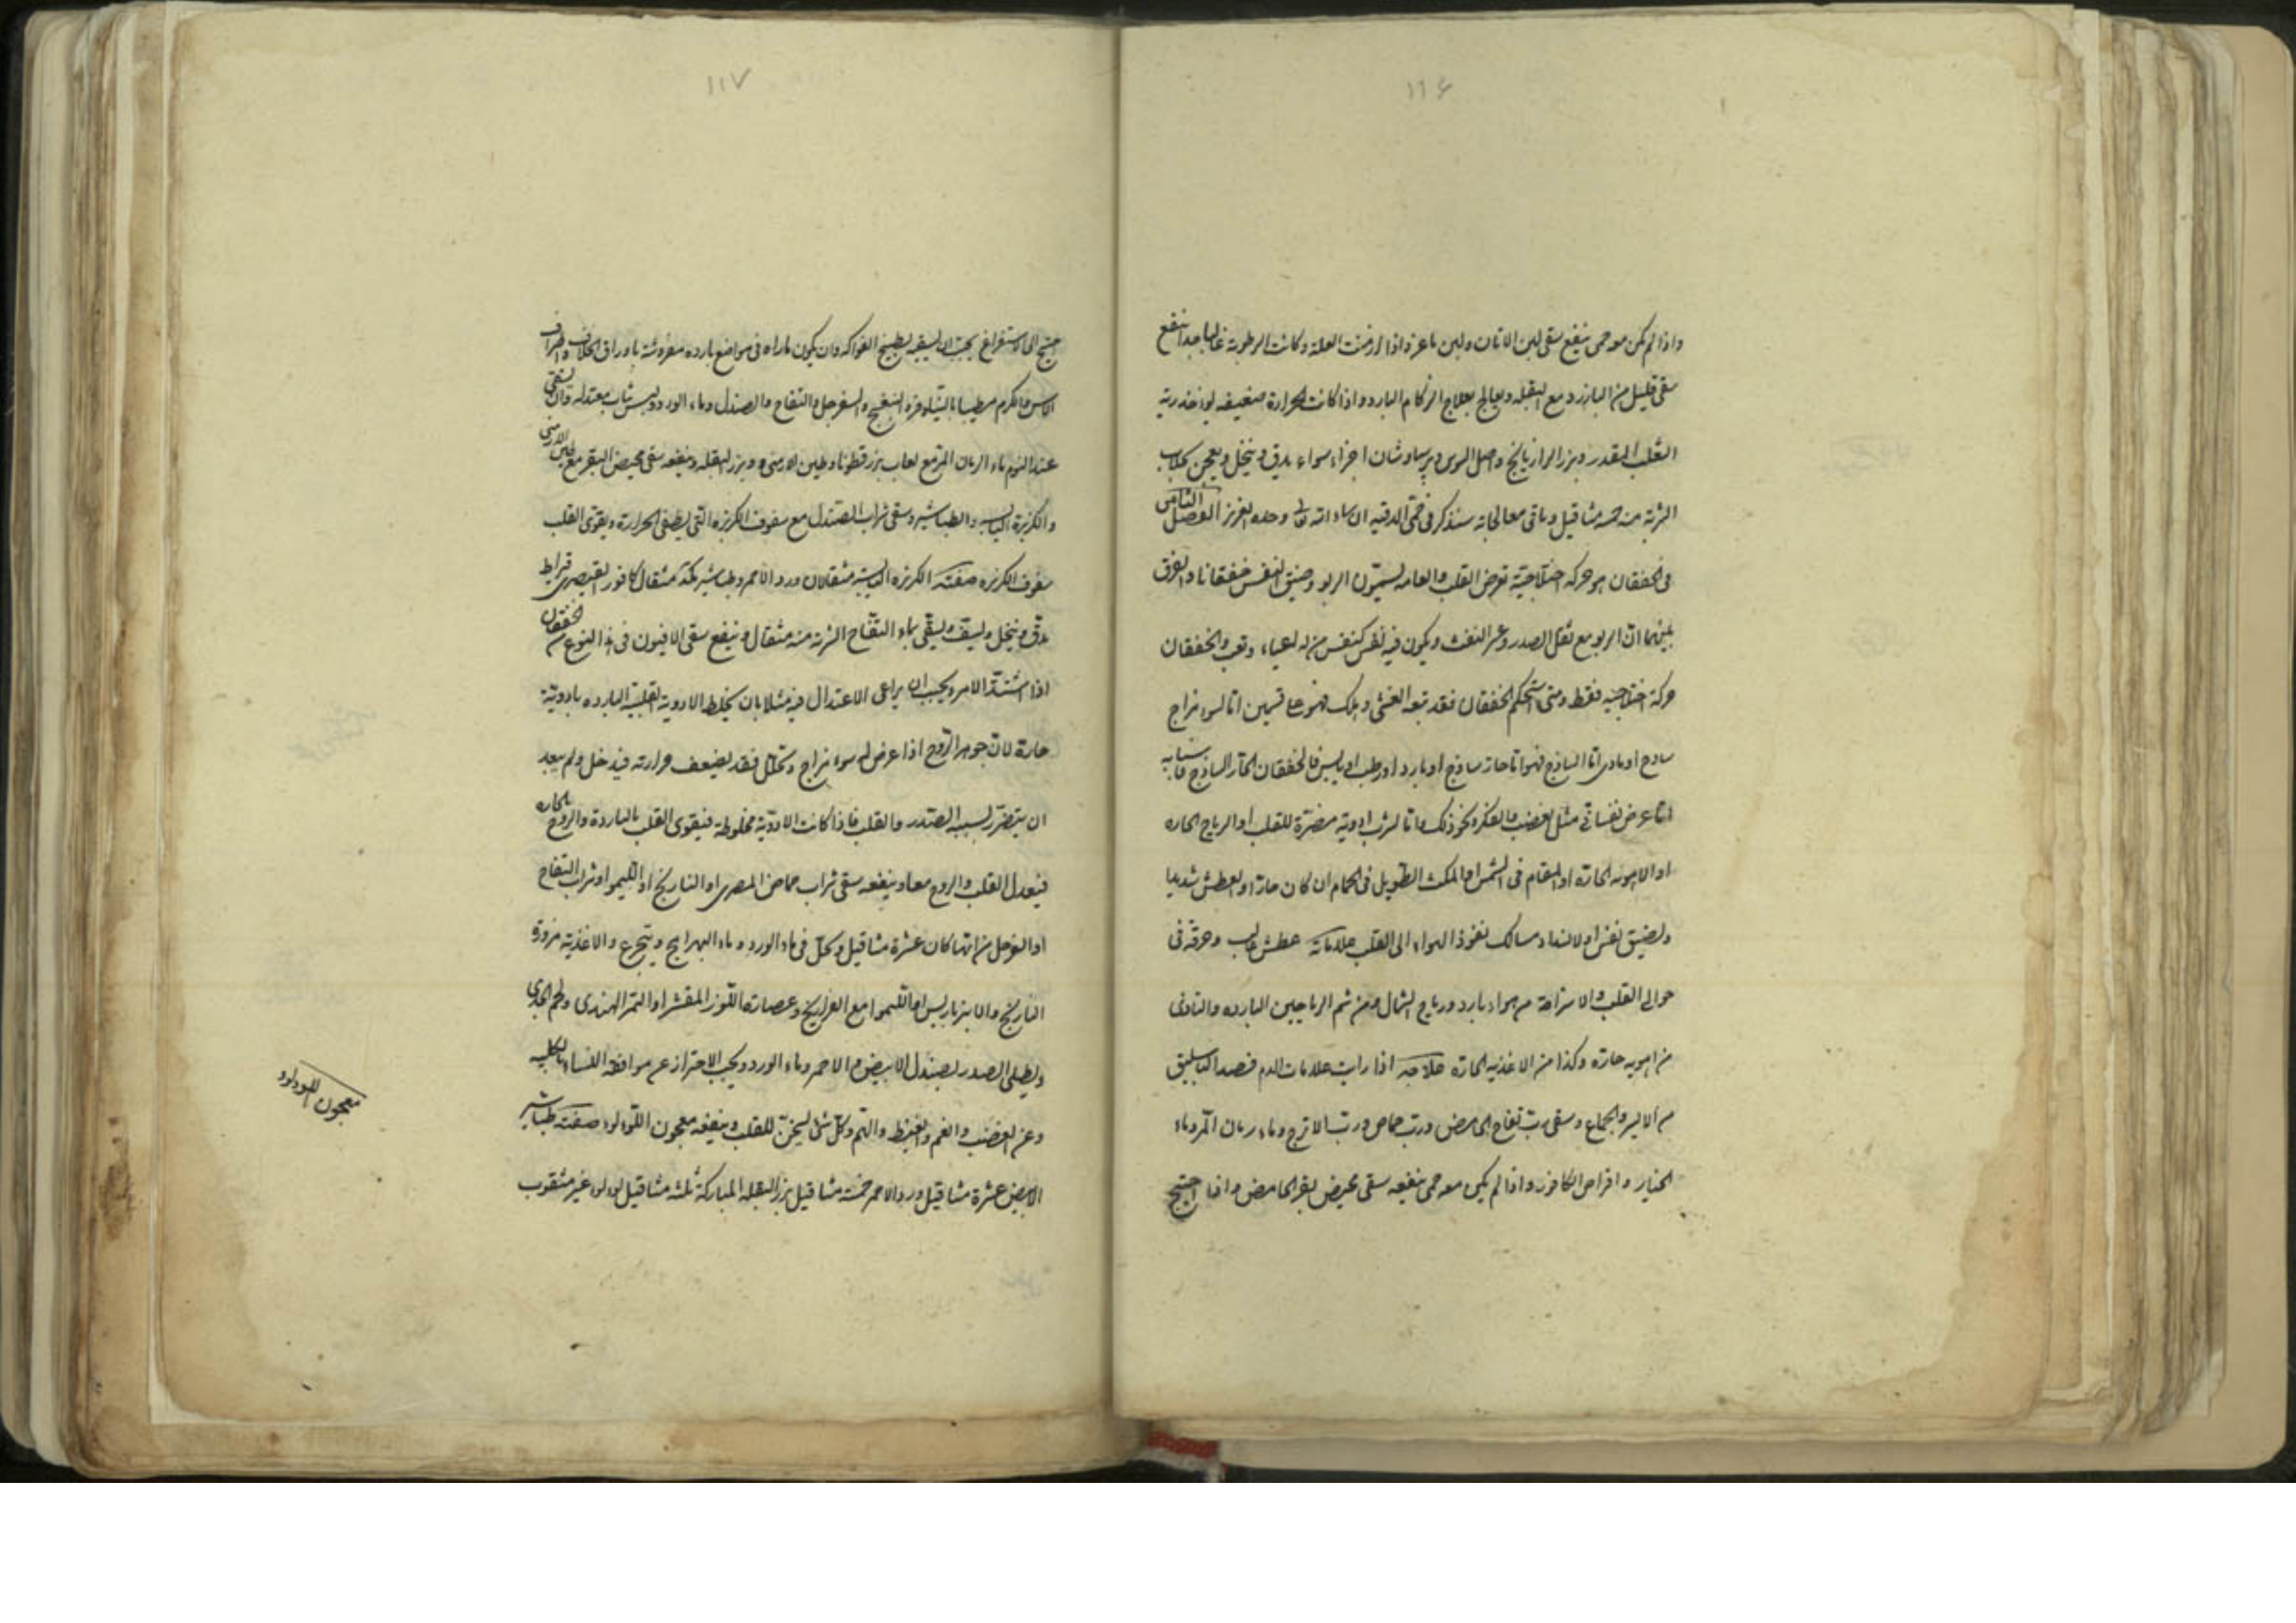 ١١٦
واذا لم يكن معه حمى ينفع سقى لبن الاتان ولبن ماعز واذا ازمنت العلة وكانت الرطوبة غالبا جدا ينفع
سقى قليل من البارزد مع البقلة ويعالج بعلاج الزكام البارد واذا كانت الحرارة ضعيفه يوخذ رية
الثعلب المقدر وبزر الرازيانج واصل السوس وبرسياوشان اجزاء سواء يدق وينخل ويعجن بجلاب
الشربة منه خمسة مثاقيل وباقى معالجاته سنذكر فى حمى الدقيه ان شاء الله تعالى وحده العزيز الفصل الثامن
فى الخفقان هو حركه اختلاجية تعرض القلب والعامه يسميّون الربو وضيق النفس خفقانا والفرق
بينهما ان الربو مع ثقل الصدر وعسر النفث ويكون فيه نفس كنفس من له اعياء وتعب والخفقان
حركة اختلاجيه فقط ومتى استحكم الخفقان فقد تبعه الغشى وهلك فهو على قسمين اما لسوء مزاج
ساذج او مادى اما الساذج فهو اما حار ساذج او بارد او رطب او يابس فالخفقان الحار الساذج فاسبابه
اما عرض نفسانى مثل الغضب والفكر ونحو ذلك واما لشرب ادوية مضرّة للقلب او الرياح الحاره
او الاهويه الحارة او المقام فى الشمس او المكث الطويل فى الحمام ان كان حارا او العطش شديدا
ولضيق نفس او لانسداد مسالك نفوذ الهواء الى القلب علاماته عطش غالب وحرقة فى
حوالى القلب والاستراحة من هواء بارد ورياح الشمال ومن شم الرياحين البارده والتاذى
من اهويه حارة وكذا من الاغذيه الحارة علاجه اذا رايت علامات الدم فصد الباسليق
من الايسر والجماع وسقى رب تفاح الحامض ورب حماض ورب الاترج وماء رمان المر وماء
الخيار واقراص الكافور واذا لم يكن معه حمى ينفعه سقى مخيض بقر الحامض واذا احتيج
١١٧
احتيج الى الاستفراغ يجب ان يسقيه بطبيخ الفواكه وان يكون ماواه فى مواضع بارده مفروشة باوراق الخلاف واطراف
الآس والكرم مطيبا بالنيلوفر والبنفسج والسفرجل والتفاح والصندل وماء الورد ويلبس ثياب معتدله وان يسقى
عند النوم ماء الرمان المز مع لعاب بزر قطونا وطين الارمنى وبزر البقله وينفعه سقى مخيض البقر مع طين الارمنى
والكزبرة اليابسه والطباشير وسقى شراب الصندل مع سفوف الكزبره التى يطفى الحرارة ويقوى القلب
سفوف الكزبره صفته الكزبره اليابسة مثقالان ورد الاحمر وطباشير مثقال كافور القيصرى قيراط
يدق وينخل ويسف ويسقى بماء التفاح الشربة منه مثقال وينفع سقى الافيون فى هذا النوع من الخفقان
اذا اشتد الامر ويجب ان يراعى الاعتدال فيه مثلا بان يخلط الادوية القلبية البارده بادوية
حارة لان جوهر الروح اذا عرض له سوء مزاج وتحلل فقد يضعف حرارته فيدخل ولم يبعد
ان يتضرر بسببه الصدر والقلب فاذا كانت الادوية مخلوطة فيقوى القلب بالباردة والروح بالحاره
فيعدل القلب والروح معا وينفعه سقى شراب حماض المصرى او النارنج او الليمو او شراب التفاح
او السفرجل من ايها كان عشرة مثاقيل وكل فى ماء الورد وماء البهرامج ويتجرع والاغذية مزورة
النارنج والانبرباريس او الليمو مع الفراريج وعصارة اللوز المقشر او التمر الهندى ولحم الجدى
ويطلى الصدر بصندل الابيض والاحمر وماء الورد ويجب الاحتراز عن مواقعة النساء بالكليه
وعن الغضب والغم والغيظ والهم وكل شئ يسخن للقلب وينفعه معجون اللؤلؤ صفته طباشير
الابيض عشرة مثاقيل ورد الاحمر خمسة مثاقيل بزر البقله المباركة ثلثه مثاقيل لؤلؤ غير مثقوب
معجون اللؤلؤ